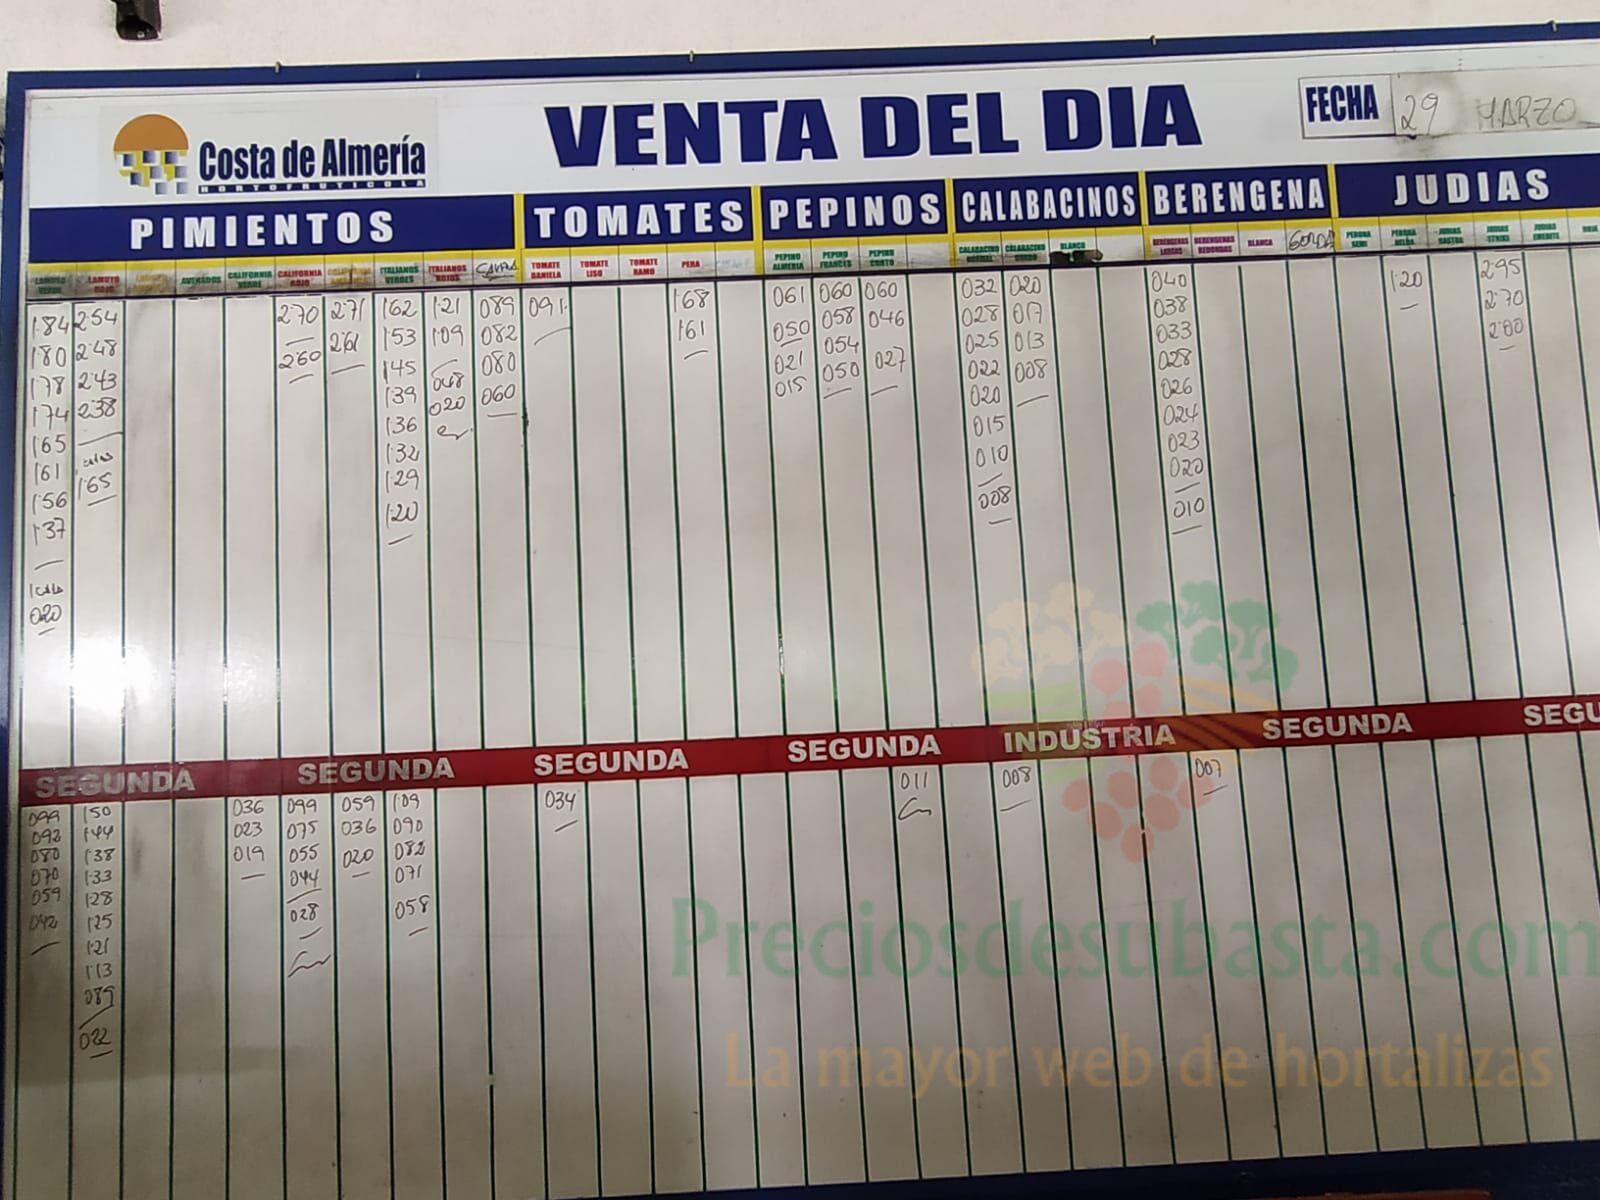 Costa de Almería
HORTOFRUTICOLA
VENTA DEL DIA
FECHA 29 MARZO
PIMIENTOS TOMATES PEPINOS CALABACINOS BERENGENA JUDIAS
LAMUYO ROJO
CALIFORNIA VERDE
CALIFORNIA ROJO
ITALIANOS VERDES
ITALIANOS ROJOS
TOMATE DANIELA
TOMATE LISO
TOMATE RAMO
PERA
PEPINO ALMERIA
PEPINO FRANCES
PEPINO CORTO
CALABACINO GORDO
BLANCO
BERENGENAS LARGAS
BERENGENAS REDONDAS
BLANCA
GORDA
PERONA SEMI
JUDIAS STRIKE
JUDIAS EMERITE
1'84
1'80
1'78
1'74
1'65
1'61
1'56
1'37
020
2'54
2'48
2'43
2'38
1'65
2'70
2'60
2'71
2'61
1'62
1'53
1'45
1'39
1'36
1'32
1'29
1'20
1'21
1'09
048
020
089
082
080
060
091
1'68
1'61
061
050
021
015
060
058
054
050
060
046
027
032
028
025
022
020
015
010
008
020
017
013
008
040
038
033
028
026
024
023
020
010
1'20
2'95
2'70
2'00
SEGUNDA SEGUNDA SEGUNDA SEGUNDA INDUSTRIA SEGUNDA SEGU
099
092
080
070
059
042
1'50
1'44
1'38
1'33
1'28
1'25
1'21
1'13
089
022
036
023
019
099
075
055
044
028
059
036
020
1'09
090
082
071
058
034
011
008
007
Preciosdesubasta.com
La mayor web de hortalizas